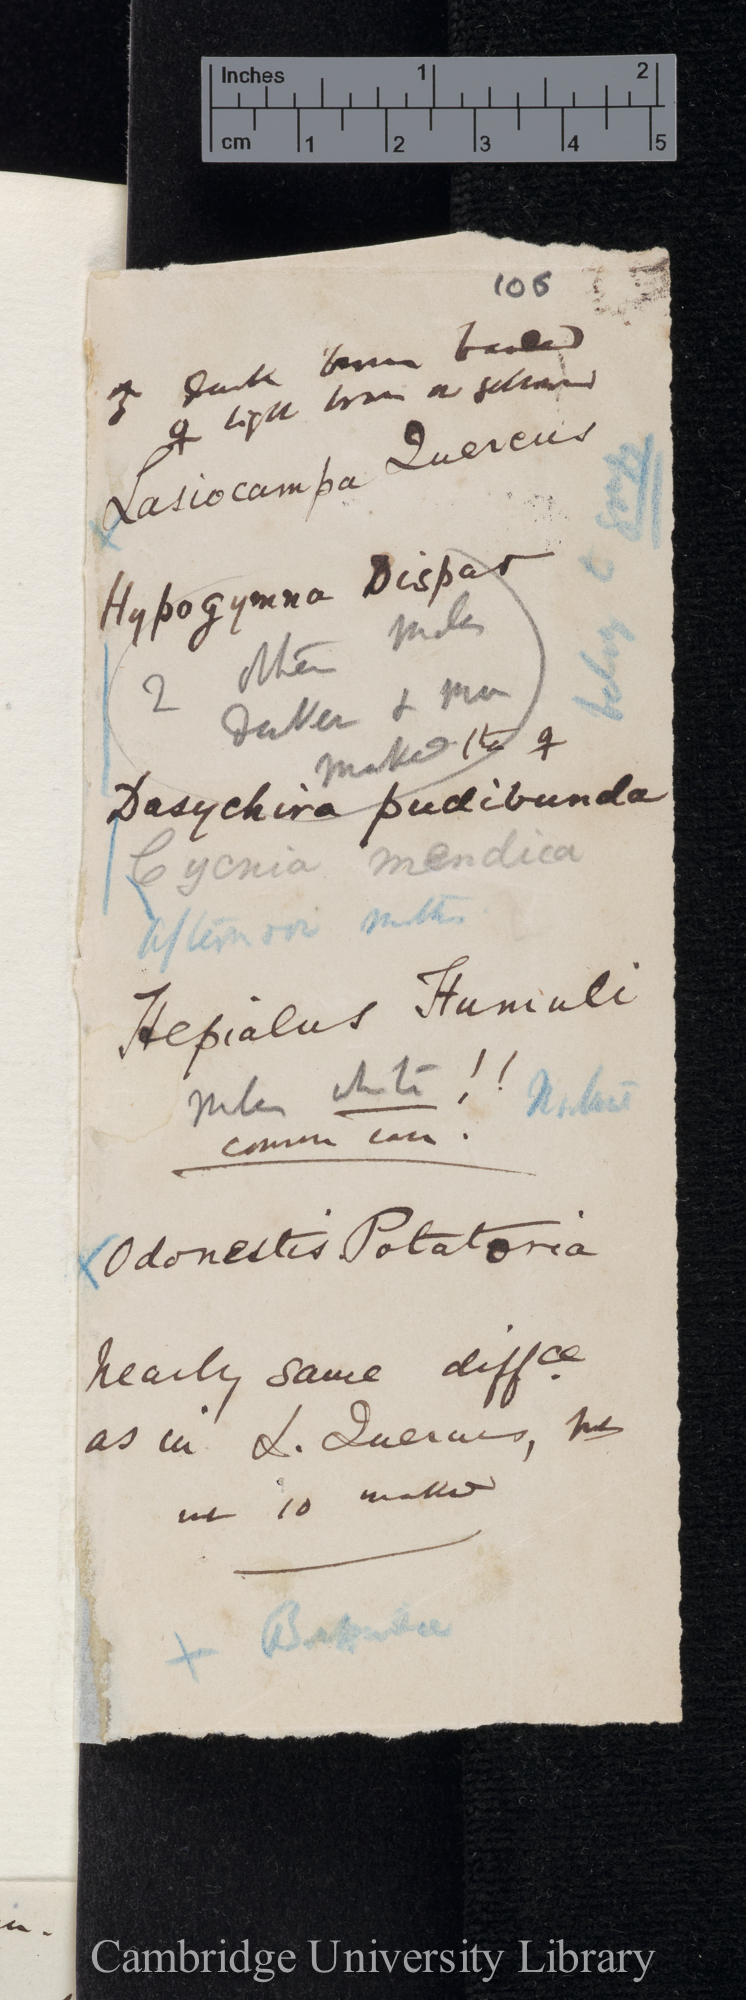 Inches 1 2
cm 1 2 3 4 5
106
♂ Dark brown banded
♀ light brown or yellowish
Lasiocampa Quercus
belong to
Hypogymna Dispar
2 other males
Darker & more
marked than ♀
Dasychira pudibunda
Cycnia mendica
Afternoon moths
Hepialus Humuli
males white !!
common case.
Odonestis Potatoria
nearly same diffce
as in L. Quercus, but
not so marked
+ Bombycidae
Cambridge University Library